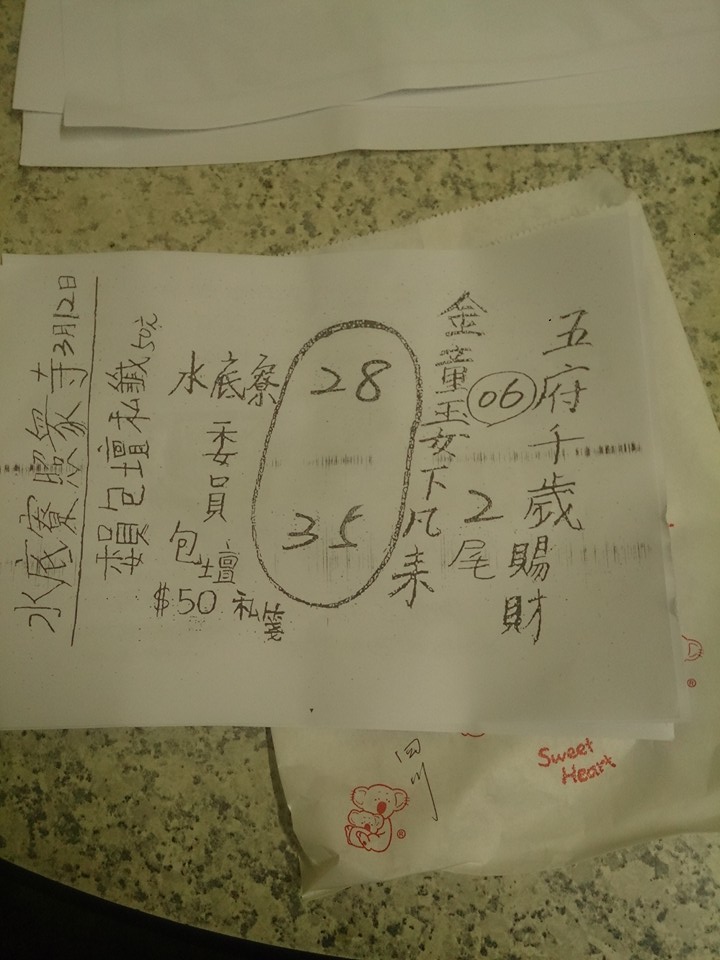 五府千歲賜財
06
2尾
金童玉女下凡來
28
35
水底寮
委員
包壇
$50 私箋
賴包壇私籤50元
水底寮照眾寺3月12日
Sweet
Heart
®
®